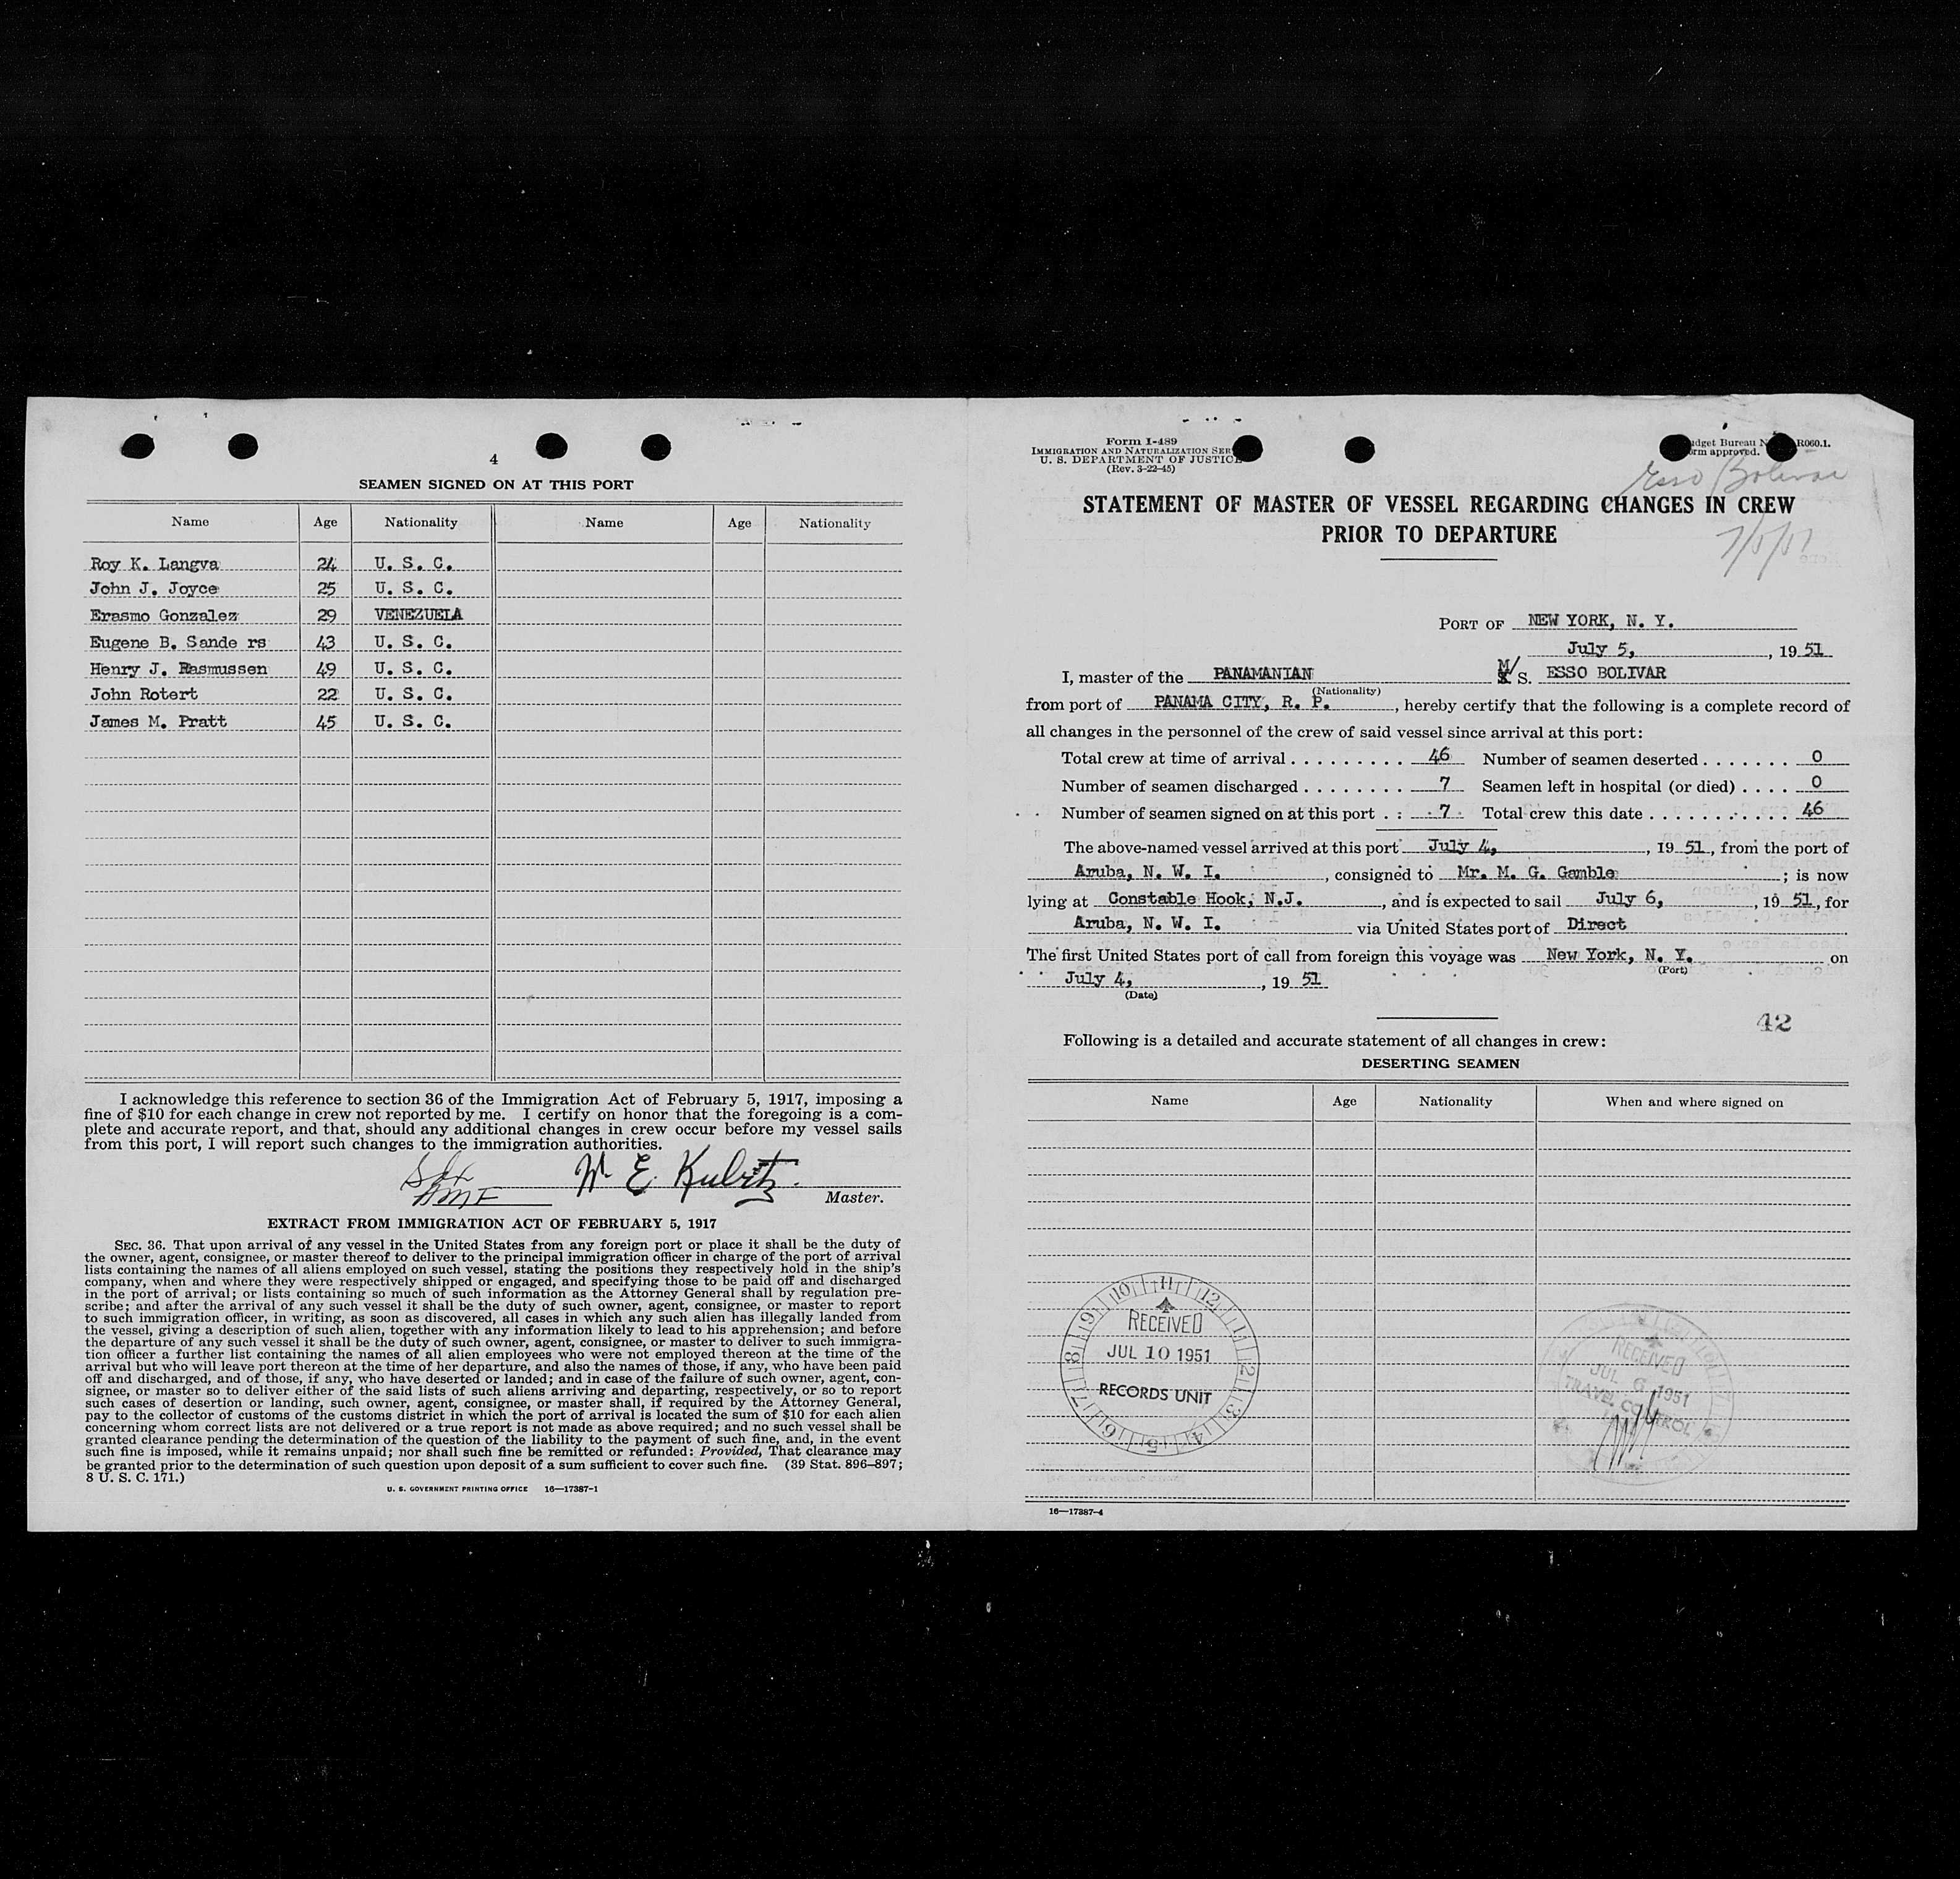 4
SEAMEN SIGNED ON AT THIS PORT
Name Age Nationality Name Age Nationality
Roy K. Langva 24 U. S. C.
John J. Joyce 25 U. S. C.
Erasmo Gonzalez 29 VENEZUELA
Eugene B. Sande rs 43 U. S. C.
Henry J. Rasmussen 49 U. S. C.
John Rotert 22 U. S. C.
James M. Pratt 45 U. S. C.
I acknowledge this reference to section 36 of the Immigration Act of February 5, 1917, imposing a
fine of $10 for each change in crew not reported by me. I certify on honor that the foregoing is a com-
plete and accurate report, and that, should any additional changes in crew occur before my vessel sails
from this port, I will report such changes to the immigration authorities.
W E. Kubitz.
Master.
EXTRACT FROM IMMIGRATION ACT OF FEBRUARY 5, 1917
SEC. 36. That upon arrival of any vessel in the United States from any foreign port or place it shall be the duty of
the owner, agent, consignee, or master thereof to deliver to the principal immigration officer in charge of the port of arrival
lists containing the names of all aliens employed on such vessel, stating the positions they respectively hold in the ship's
company, when and where they were respectively shipped or engaged, and specifying those to be paid off and discharged
in the port of arrival; or lists containing so much of such information as the Attorney General shall by regulation pre-
scribe; and after the arrival of any such vessel it shall be the duty of such owner, agent, consignee, or master to report
to such immigration officer, in writing, as soon as discovered, all cases in which any such alien has illegally landed from
the vessel, giving a description of such alien, together with any information likely to lead to his apprehension; and before
the departure of any such vessel it shall be the duty of such owner, agent, consignee, or master to deliver to such immigra-
tion officer a further list containing the names of all alien employees who were not employed thereon at the time of the
arrival but who will leave port thereon at the time of her departure, and also the names of those, if any, who have been paid
off and discharged, and of those, if any, who have deserted or landed; and in case of the failure of such owner, agent, con-
signee, or master so to deliver either of the said lists of such aliens arriving and departing, respectively, or so to report
such cases of desertion or landing, such owner, agent, consignee, or master shall, if required by the Attorney General,
pay to the collector of customs of the customs district in which the port of arrival is located the sum of $10 for each alien
concerning whom correct lists are not delivered or a true report is not made as above required; and no such vessel shall be
granted clearance pending the determination of the question of the liability to the payment of such fine, and, in the event
such fine is imposed, while it remains unpaid; nor shall such fine be remitted or refunded: Provided, That clearance may
be granted prior to the determination of such question upon deposit of a sum sufficient to cover such fine. (39 Stat. 896–897;
8 U. S. C. 171.)
U. S. GOVERNMENT PRINTING OFFICE 16—17387-1
Form I-489
IMMIGRATION AND NATURALIZATION SER
U. S. DEPARTMENT OF JUSTICE
(Rev. 3-22-45)
dget Bureau N R060.1.
rm approved.
Esso Bolivar
STATEMENT OF MASTER OF VESSEL REGARDING CHANGES IN CREW
PRIOR TO DEPARTURE
7/5/51
PORT OF NEW YORK, N. Y.
July 5, , 19 51
I, master of the PANAMANIAN M/ S. ESSO BOLIVAR
(Nationality)
from port of PANAMA CITY, R. P. , hereby certify that the following is a complete record of
all changes in the personnel of the crew of said vessel since arrival at this port:
Total crew at time of arrival . . . . . . . . . 46 Number of seamen deserted . . . . . . . 0
Number of seamen discharged . . . . . . . . 7 Seamen left in hospital (or died) . . . . 0
Number of seamen signed on at this port . : 7 Total crew this date . . . . . . . . . . . 46
The above-named vessel arrived at this port July 4, , 19 51, from the port of
Aruba, N. W. I. , consigned to Mr. M. G. Gamble ; is now
lying at Constable Hook, N.J. , and is expected to sail July 6, , 19 51, for
Aruba, N. W. I. via United States port of Direct
The first United States port of call from foreign this voyage was New York, N. Y. on
(Port)
July 4, , 19 51
(Date)
42
Following is a detailed and accurate statement of all changes in crew:
DESERTING SEAMEN
Name Age Nationality When and where signed on
10 11 12
9 RECEIVED 1
8 JUL 10 1951 2
7 RECORDS UNIT 3
6 5 4
RECEIVED
JUL 6 1951
TRAVEL CONTROL
16—17387-4